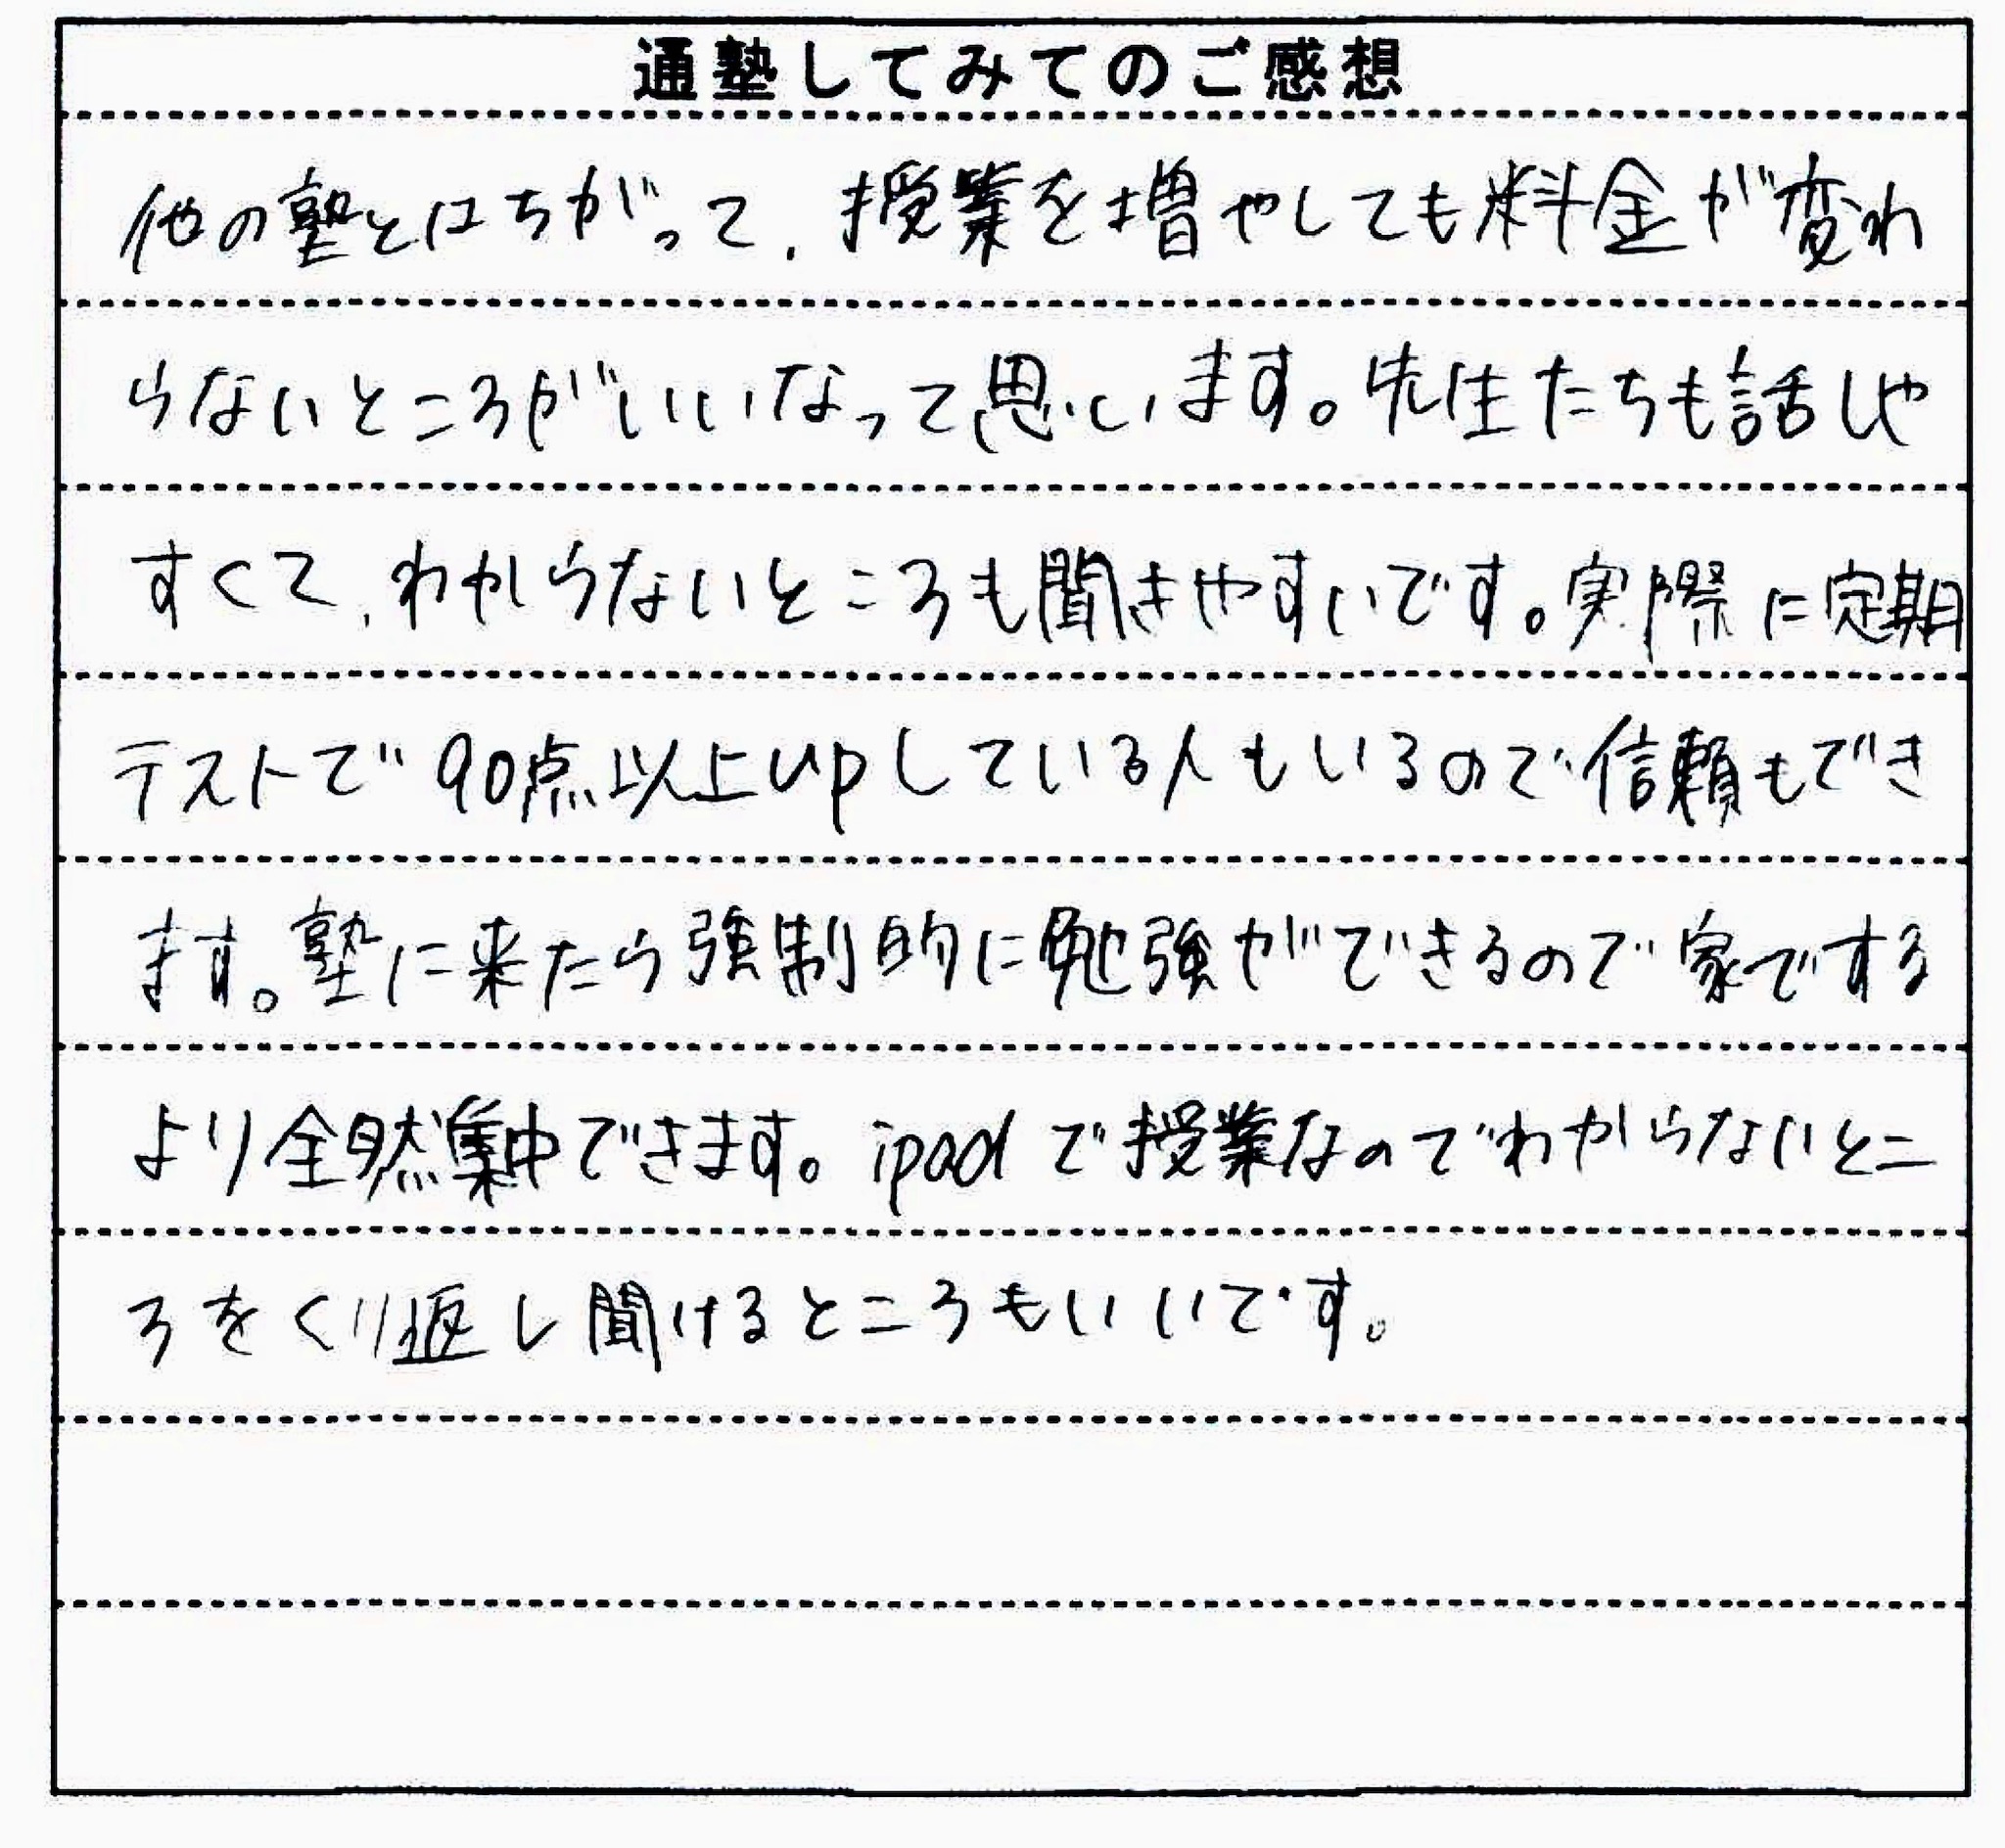 通塾してみてのご感想
他の塾とはちがって、授業を増やしても料金が変わ
らないところがいいなって思います。先生たちも話しや
すくて、わからないところも聞きやすいです。実際に定期
テストで90点以上upしている人もいるので信頼もでき
ます。塾に来たら強制的に勉強ができるので家でする
より全然集中できます。ipadで授業なのでわからないとこ
ろをくり返し聞けるところもいいです。